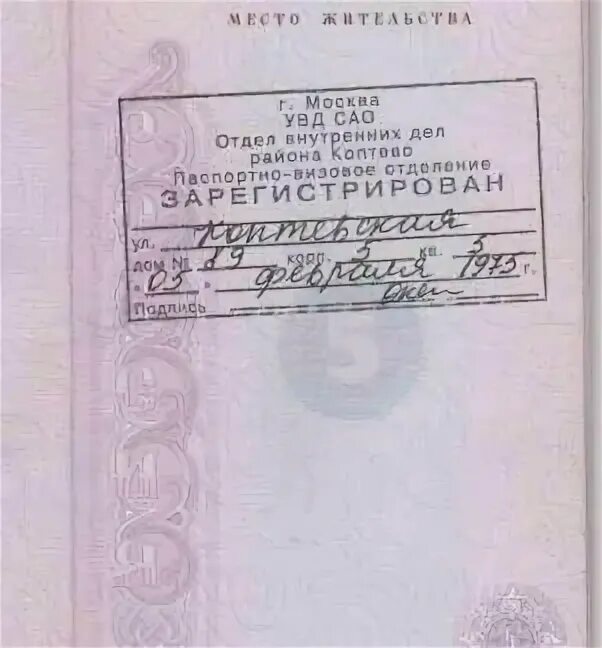 МЕСТО ЖИТЕЛЬСТВА
г. Москва
УВД САО
Отдел внутренних дел
района Коптево
Паспортно-визовое отделение
ЗАРЕГИСТРИРОВАН
ул. Коптевская
дом № 89 корп. 5 кв. 5
"03" февраля 1975 г.
Подпись